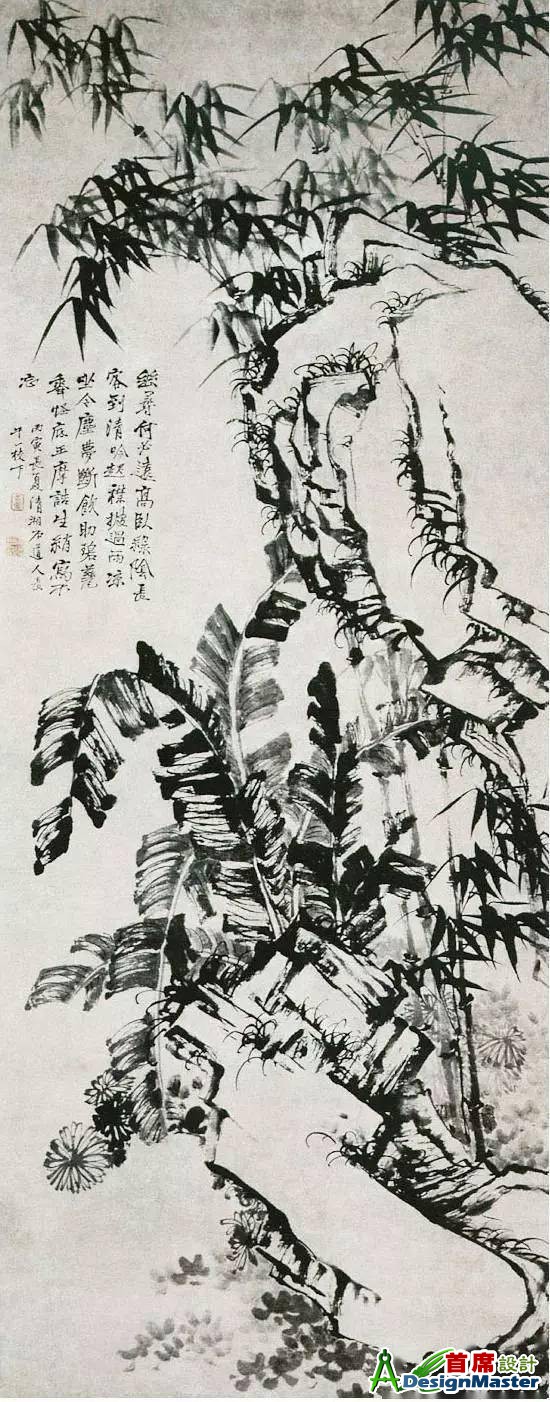 幽尋何必遠高臥綠陰長
客到清吟起襟披過雨涼
坐令塵夢斷飲助碧筩
香怪底王摩詰生綃寫不
忘
丙寅長夏清湘石道人長
干一枝下
首席設計
DesignMaster